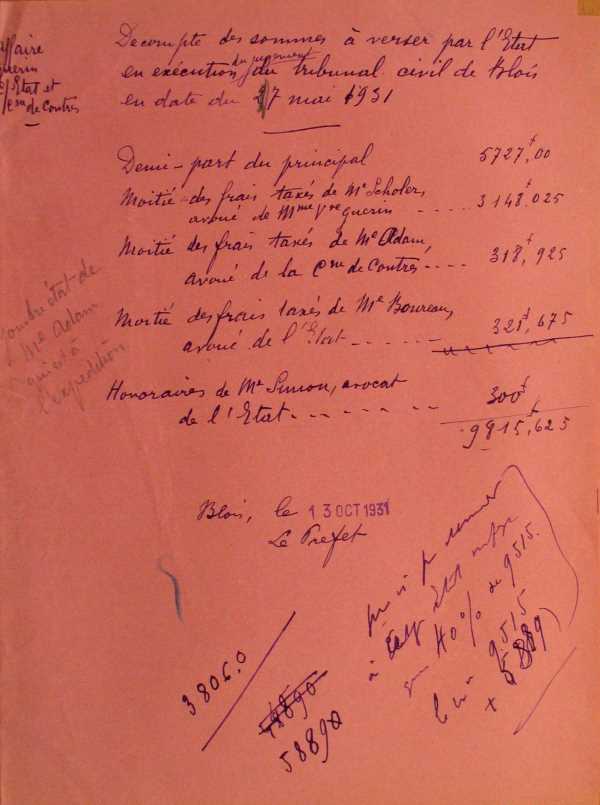 affaire
Guerin
c/ Etat et
Cne de Contres
Decompte des sommes à verser par l'Etat
en exécution du jugement du tribunal civil de Blois
en date du 27 mai 1931
Demi-part du principal 5727f,00
Moitié des frais taxés de Me Scholer,
avoué de Mme Vve Guerin ---- 3148f,025
Moitié des frais taxés de Me Adam,
avoué de la Cne de Contres ---- 318f,925
Moitié des frais taxés de Me Boureau,
avoué de l'Etat ------ 321f,675
Honoraires de Me Simon, avocat
de l'Etat ------- 300f
9815f,625
Joindre état de
Me Adam
à
l'expédition
Blois, le 13 OCT 1931
Le Prefet
à
que 40% de 9515.
9.515
x 5889
3806.0
58890